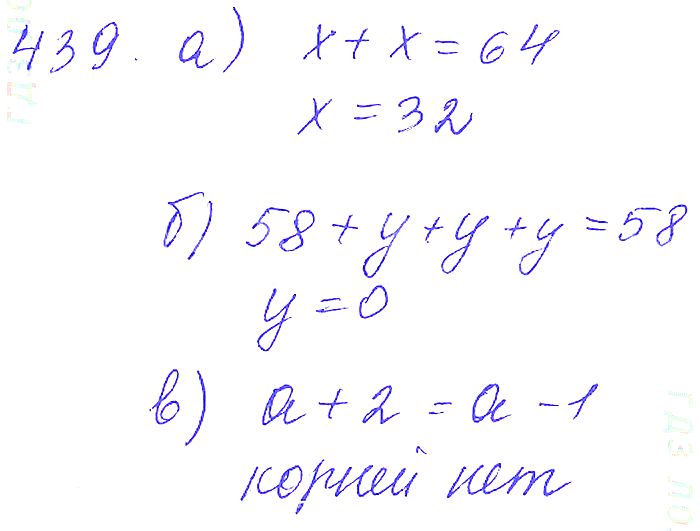 439. а) x + x = 64
x = 32
б) 58 + y + y + y = 58
y = 0
в) a + 2 = a - 1
корней нет